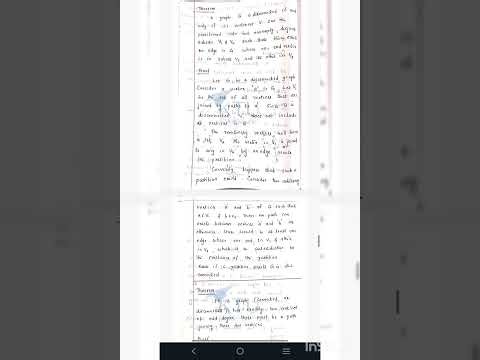 Theorem
A graph G is disconnected if and
only if its vertex set V can be
partitioned into two nonempty, disjoint
subsets V1 & V2 such that there exist
no edge in G whose one end vertex
is in subset V1 and the other in V2
Proof
Let G be a disconnected graph
Consider a vertex 'a' in G. Let V1
be the set of all vertices that are
joined by paths to a. Since G is
disconnected V1 does not include
all vertices in G.
The remaining vertices will form
a set V2. No vertex in V1 is joined
to any in V2 by an edge. Hence
the partition.
Conversely, suppose that such a
partition exists. Consider two arbitrary
vertices 'a' and 'b' of G such that
a∈V1 & b∈V2. Then no path can
exists between vertices 'a' and 'b'
otherwise, there would be at least one
edge whose one end in V1 & other
in V2, which is a contradiction to
the existence of the partition
Hence if a partition exists G is dis
connected
Theorem
If a graph (connected or
disconnected) has exactly two vertices
of odd degree, there must be a path
joining these two vertices
Proof
Ins